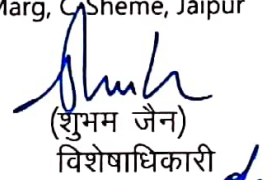 Marg, C-Sheme, Jaipur
(शुभम जैन)
विशेषाधिकारी